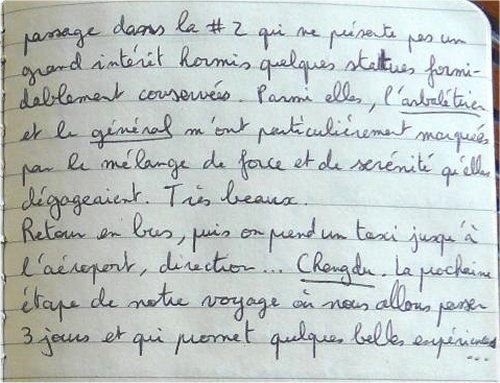 passage dans la #2 qui ne présente pas un
grand intérêt hormis quelques statues formi-
dablement conservées. Parmi elles, l'arbalétrier
et le général m'ont particulièrement marquées
par le mélange de force et de sérénité qu'elles
dégageaient. Très beaux.
Retour en bus, puis on prend un taxi jusqu'à
l'aéroport, direction... Chengdu. La prochaine
étape de notre voyage où nous allons passer
3 jours et qui promet quelques belles expériences
...